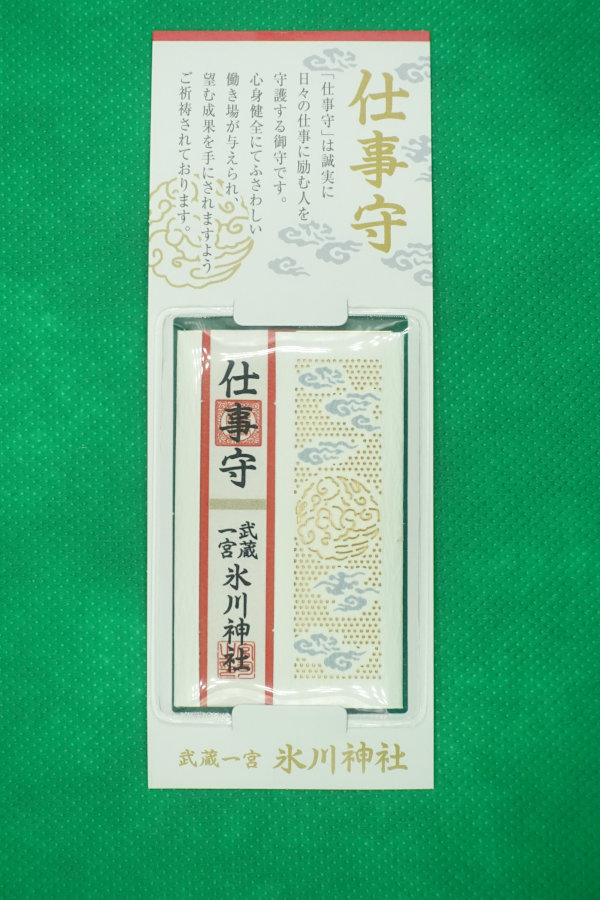 仕事守
「仕事守」は誠実に
日々の仕事に励む人を
守護する御守です。
心身健全にてふさわしい
働き場が与えられ、
望む成果を手にされますよう
ご祈祷されております。
仕事守
武蔵
一宮
氷川神社
武蔵一宮 氷川神社